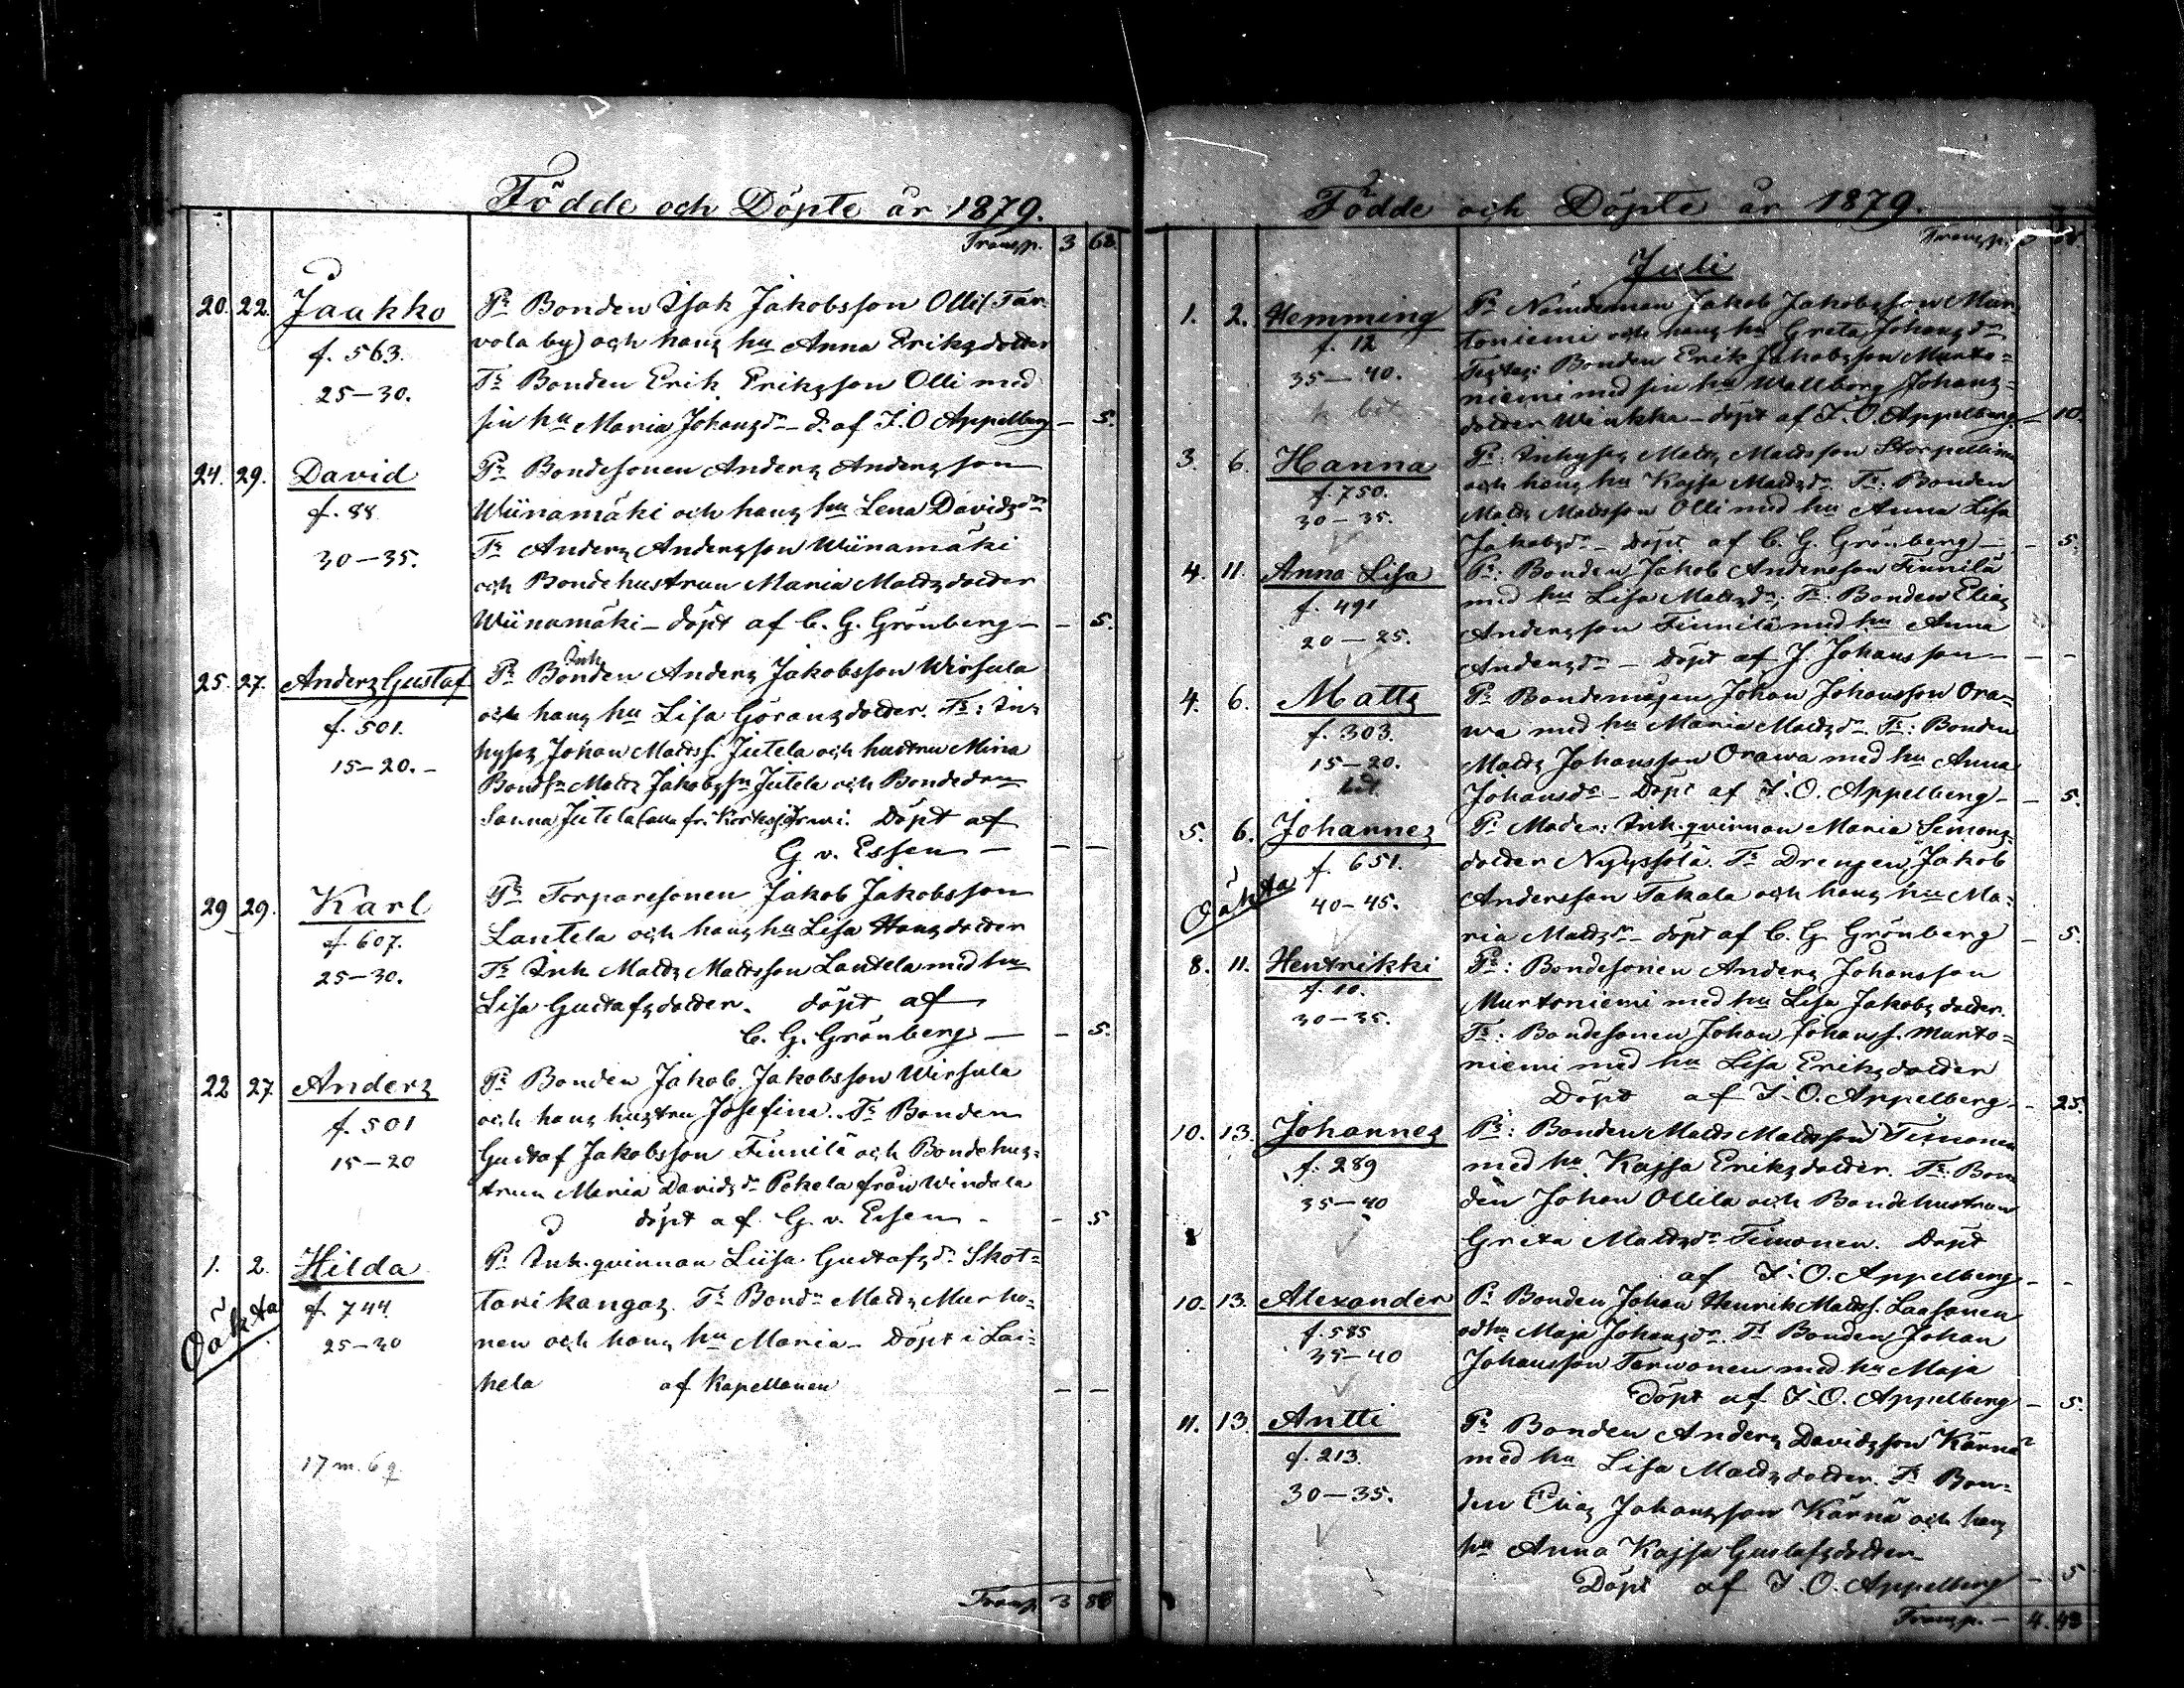 Födde och Döpte år 1879.
Transp. 3 68.
20. 22. Jaakko Pr Bonden Isak Jakobsson Olli (Tar-
f. 563. vola by) och hans hu Anna Eriksdotter
25-30. Tr Bonden Erik Eriksson Olli med
sin hu Maria Johansdr - d. af I. O Appelberg - 5.
24. 29. David Pr Bondesonen Anders Andersson
f. 88 Wiinamäki och hans hu Lena Davidsdr
30-35. Tr Anders Andersson Wiinamäki
och Bondehustrun Maria Mattsdotter
Wiinamäki - döpt af C. G. Grönberg - - 5.
25. 27. Anders Gustaf Pr Bonden Inh Anders Jakobsson Wirsula
f. 501. och hans hu Lisa Göransdotter. Tr: In-
15-20. - hyses Johan Matts. Jutela och hustru Mina
Bondsn Matts Jakobssn Jutela och Bondedrn
Sanna Jutela döpt af
G. v. Essen - - -
29 29. Karl Pr Torparesonen Jakob Jakobsson
f. 607. Lantela och hans hu Lisa Hansdotter
25-30. Tr Inh Matts Mattsson Lantela med hu
Lisa Gustafsdotter. döpt af
C. G. Grönberg - - 5.
22 27. Anders Pr Bonden Jakob Jakobsson Wirsula
f. 501 och hans hustru Josefina. Tr Bonden
15-20 Gustaf Jakobsson Finnilä och Bondehus-
trun Maria Davidsdr Pekela från Windala
döpt af G. v. Essen - - 5
1. 2. Hilda Pr Inh. qvinnan Liisa Gustafsdr Skot-
Oäkta f. 744. tarikangas. Tr Bondn Matts Murho-
25-30 nen och hans hu Maria - Döpt i Lai-
hela af Kapellanen - -
17 m. 6 q
Transp. 3 88
Födde och Döpte år 1879.
Transp. 3 88.
Juli
1. 2. Hemming Pr Nämdeman Jakob Jakobsson Mur-
f. 12 toniemi och hans hu Greta Johansdr
35-40. Testes: Bonden Erik Jakobsson Murto-
niemi med sin hu Wallborg Johans-
dotter Wiukka - döpt af I. O. Appelberg - 10.
3. 6. Hanna Pr: Inhyses Matts Mattsson Storpellinen
f. 750. och hans hu Kajsa Mattsdr Tr: Bonden
30-35. Matts Mattsson Olli med hu Anna Lisa
Jakobsdr - Döpt af C. G. Grönberg - - 5.
4. 11. Anna Lisa Pr: Bonden Jakob Andersson Finnilä
f. 491 med hu Lisa Mattsdr; Tr: Bonden Elias
20-25. Andersson Finnilä med hu Anna
Andersdr - Döpt af J. Johansson - - -
4. 6. Matts Pr Bondemågen Johan Johansson Ora-
f. 303. wa med hu Maria Mattsdr Tr: Bonden
15-20. Matts Johansson Orawa med hu Anna
Johansdr - Döpt af I. O. Appelberg - - 5.
5. 6. Johannes Pr Mader: Inh. qvinnan Maria Simons-
f. 651. dotter Nyyssölä. Tr Drengen Jakob
Oäkta 40-45. Andersson Takala och hans hu Ma-
ria Mattsdr - döpt af C. G. Grönberg - 5.
8. 11. Hentrikki Pr: Bondesonen Anders Johansson
f. 10. Murtoniemi med hu Lisa Jakobsdotter.
30-35. Tr: Bondesonen Johan Johans. Murto-
niemi med hu Lisa Eriksdotter
Döpt af I. O. Appelberg. - 25.
10. 13. Johannes Pr: Bonden Matts Mattsson Timonen
f. 289 med hu Kajsa Eriksdotter. Tr: Bon-
35-40 den Johan Ollila och Bondehustrun
Greta Mattsdr Timonen. Döpt
af I. O. Appelberg - -
10. 13. Alexander Pr Bonden Johan Henrik Matts. Laasanen
f. 585 och hu Maja Johansdr. Tr Bonden Johan
35-40 Johansson Tarwonen med hu Maja
Döpt af I. O. Appelberg - 5.
11. 13. Antti Pr Bonden Anders Davidsson Kärnä
f. 213. med hu Lisa Mattsdotter. Tr Bon-
30-35. den Elias Johansson Kärnä och hans
hu Anna Kajsa Gustafsdotter
Döpt af I. O. Appelberg - 5
Transp. - 4. 48